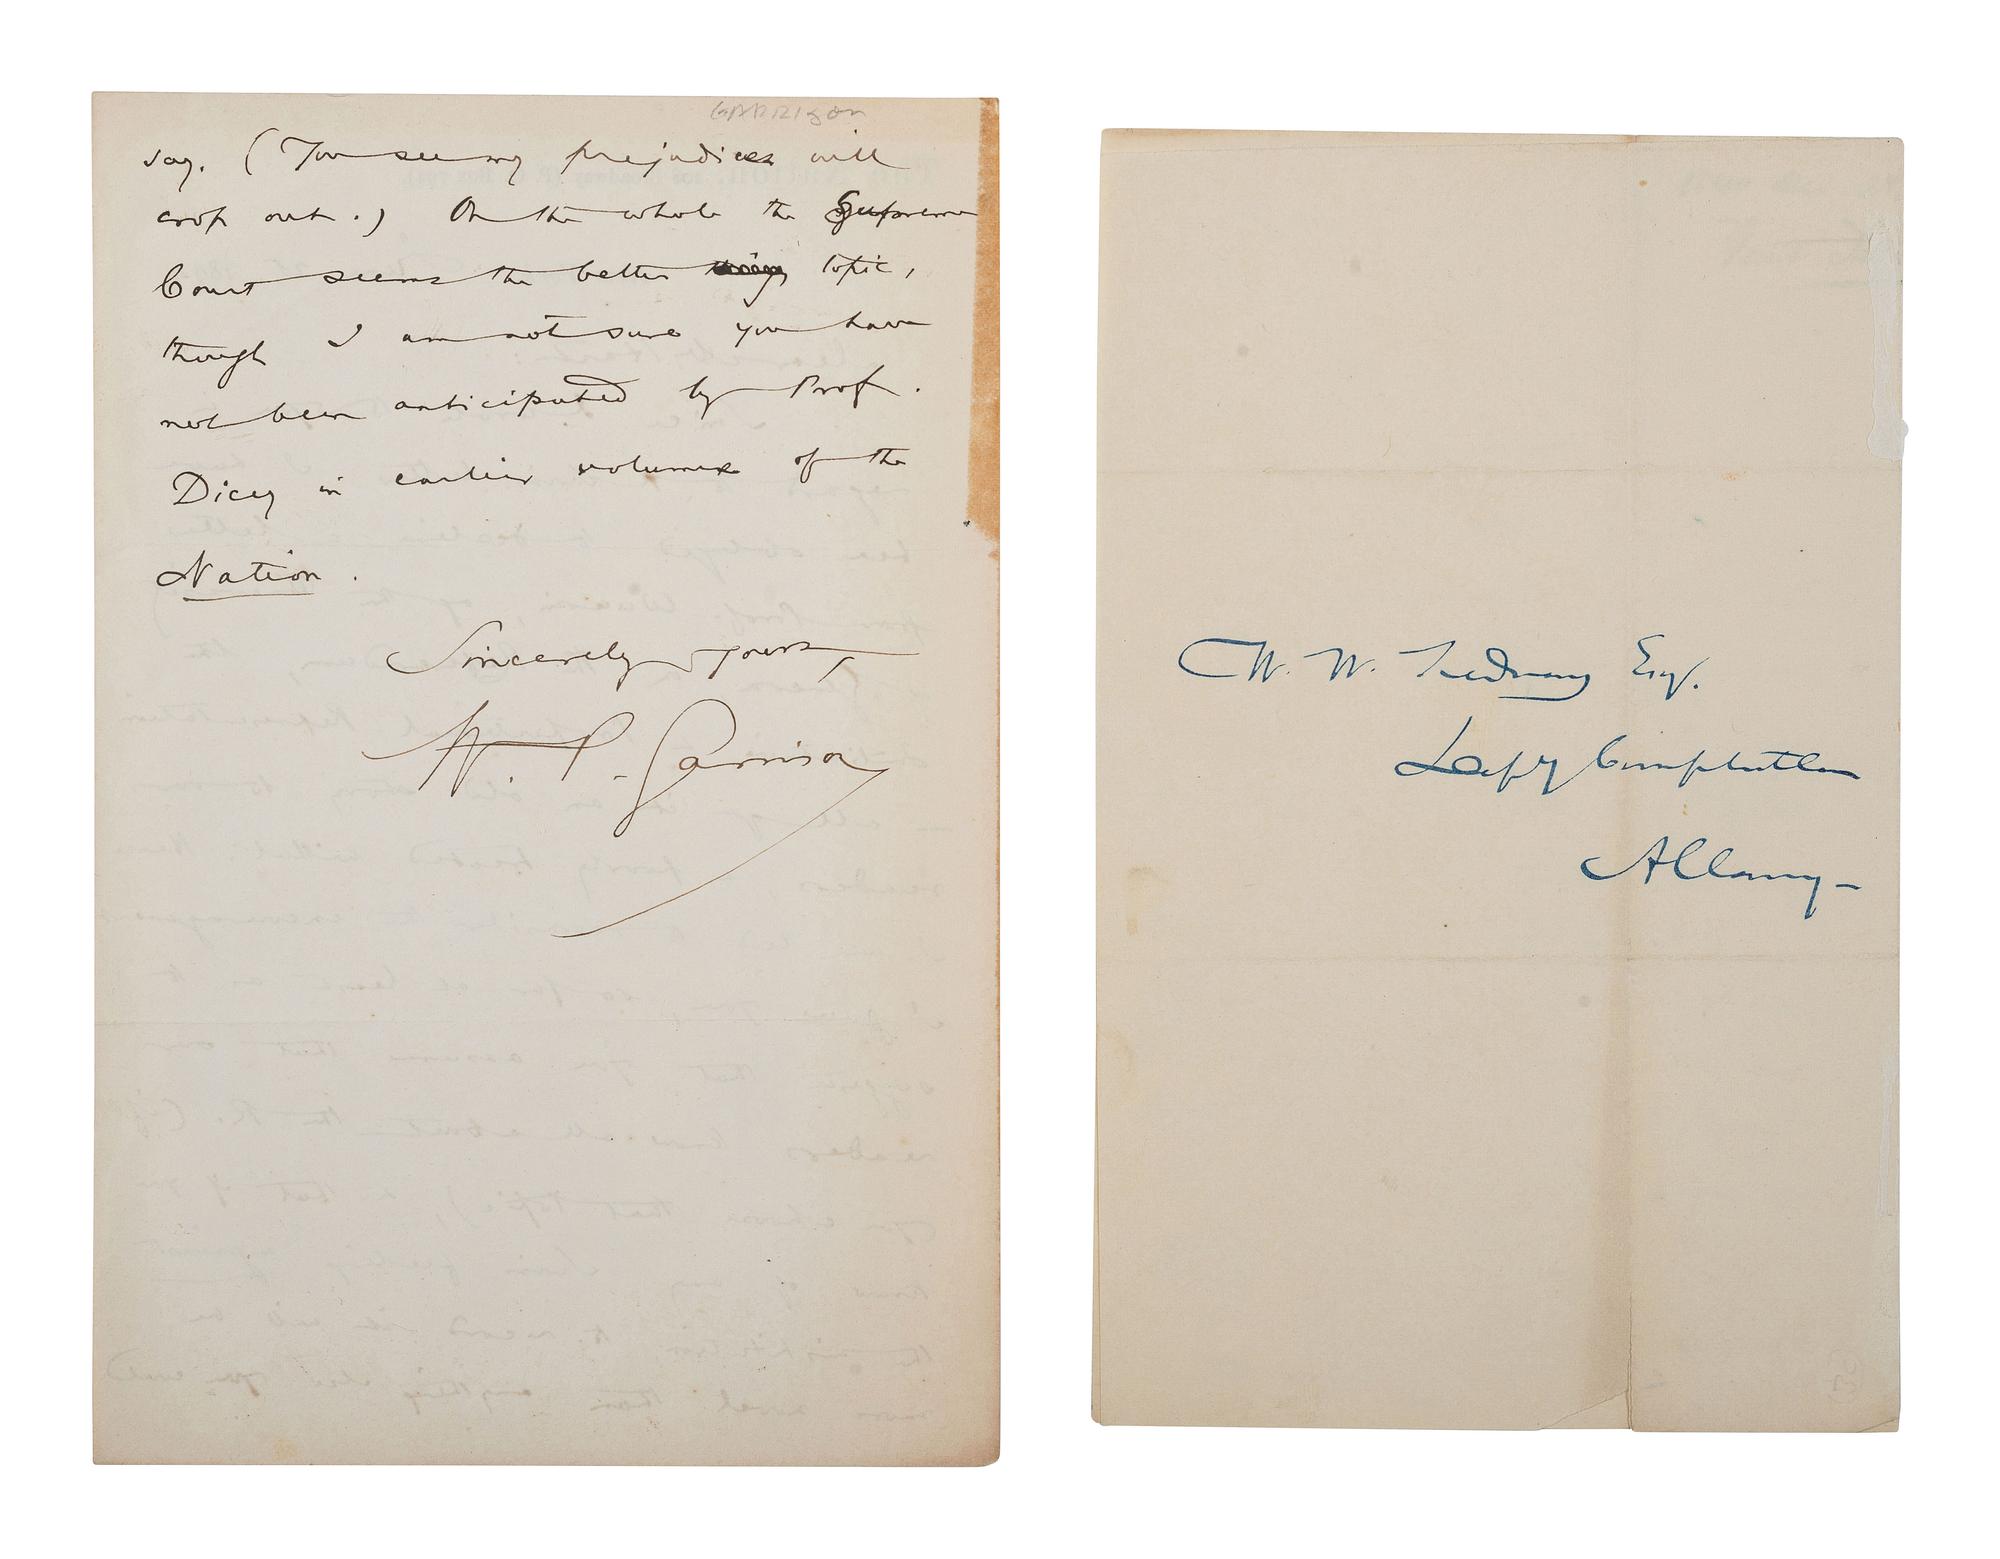 GARRISON
say. (You see my prejudices will
crop out.) On the whole the Supreme
Court seems the better topic,
though I am not sure you have
not been anticipated by Prof.
Dicey in earlier volumes of the
Nation.
Sincerely yours,
W. P. Garrison
W. W. Esq.
Depy
Albany-